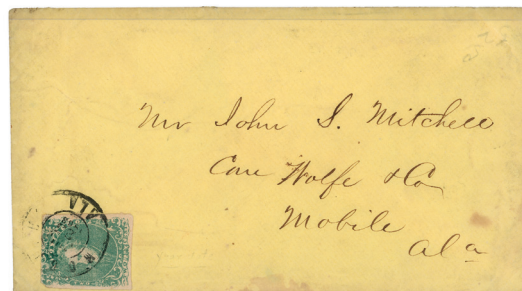 Mr John S. Mitchell
Care Wolfe & Co
Mobile
Ala
ALA